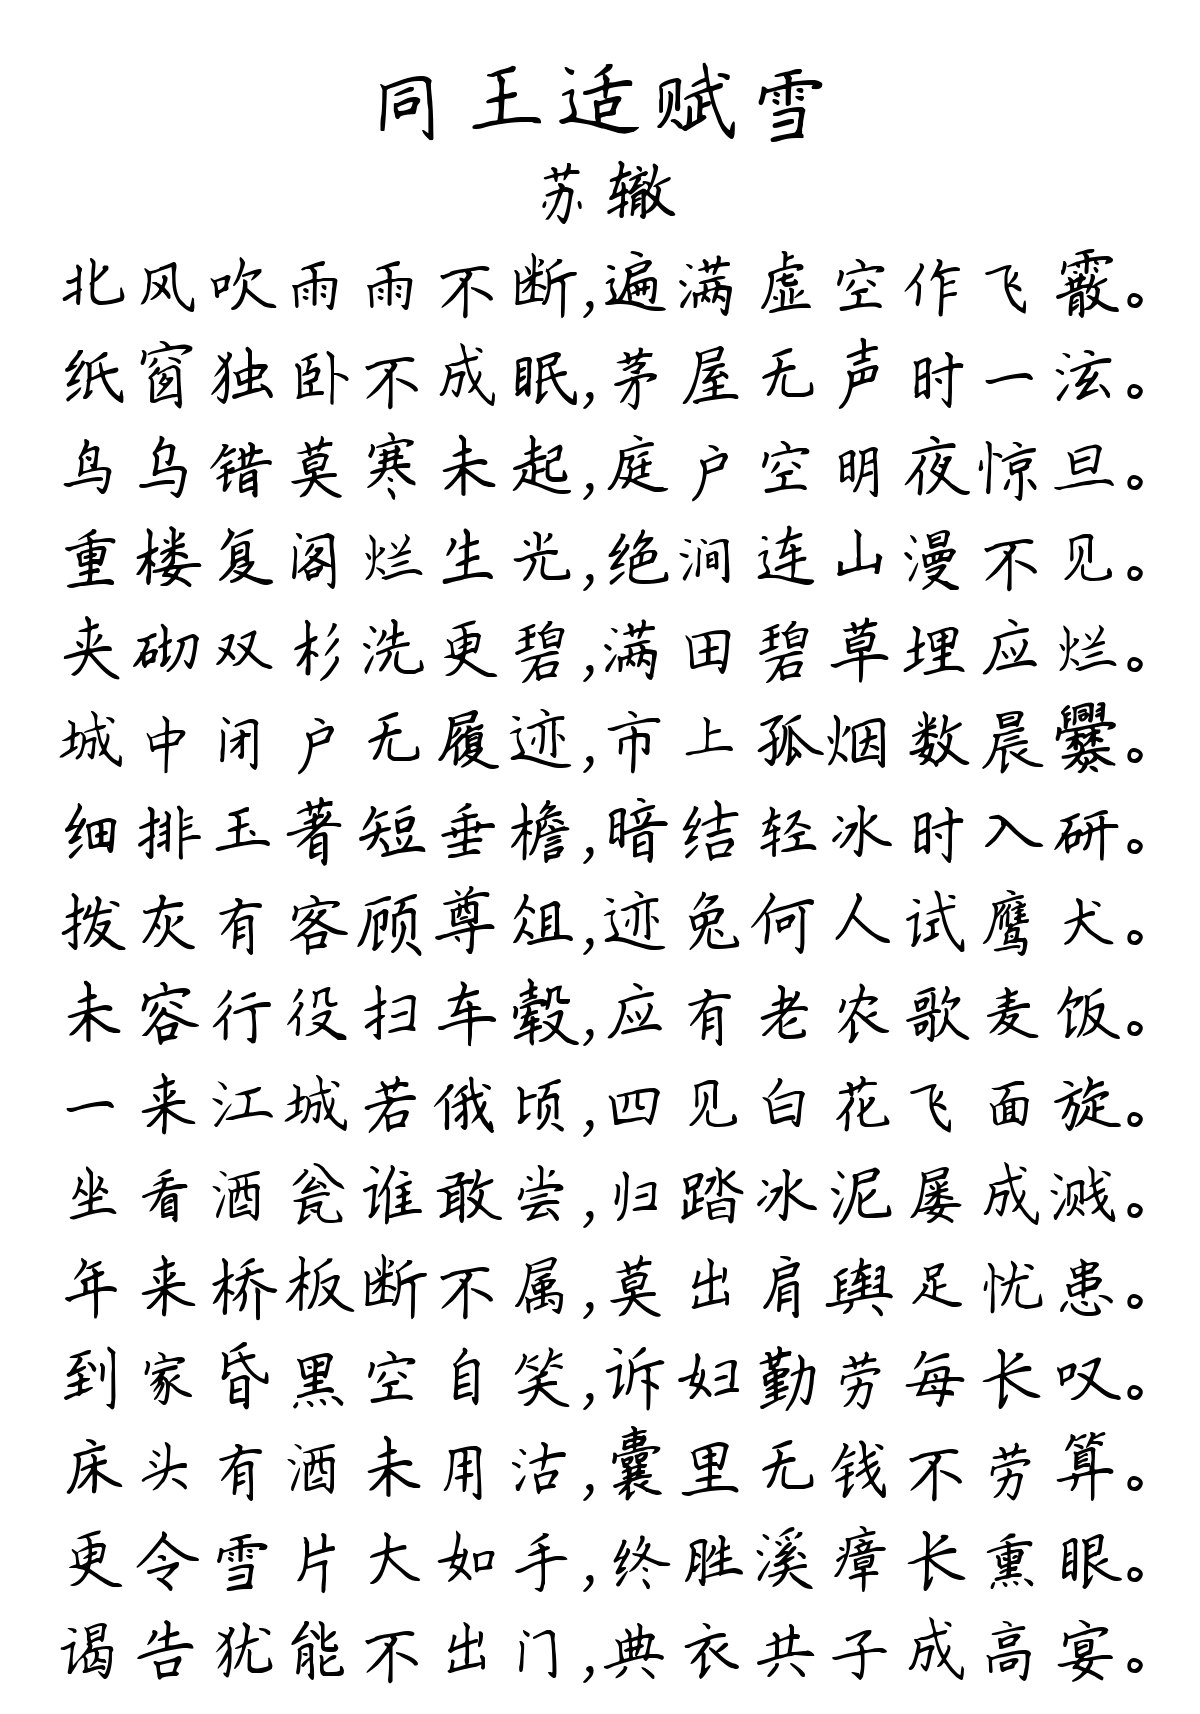 同王适赋雪
苏辙
北风吹雨雨不断,遍满虚空作飞霰。
纸窗独卧不成眠,茅屋无声时一泫。
鸟乌错莫寒未起,庭户空明夜惊旦。
重楼复阁烂生光,绝涧连山漫不见。
夹砌双杉洗更碧,满田碧草埋应烂。
城中闭户无履迹,市上孤烟数晨爨。
细排玉著短垂檐,暗结轻冰时入研。
拨灰有客顾尊俎,迹兔何人试鹰犬。
未容行役扫车毂,应有老农歌麦饭。
一来江城若俄顷,四见白花飞面旋。
坐看酒瓮谁敢尝,归踏冰泥屡成溅。
年来桥板断不属,莫出肩舆足忧患。
到家昏黑空自笑,诉妇勤劳每长叹。
床头有酒未用沽,囊里无钱不劳算。
更令雪片大如手,终胜溪瘴长熏眼。
谒告犹能不出门,典衣共子成高宴。